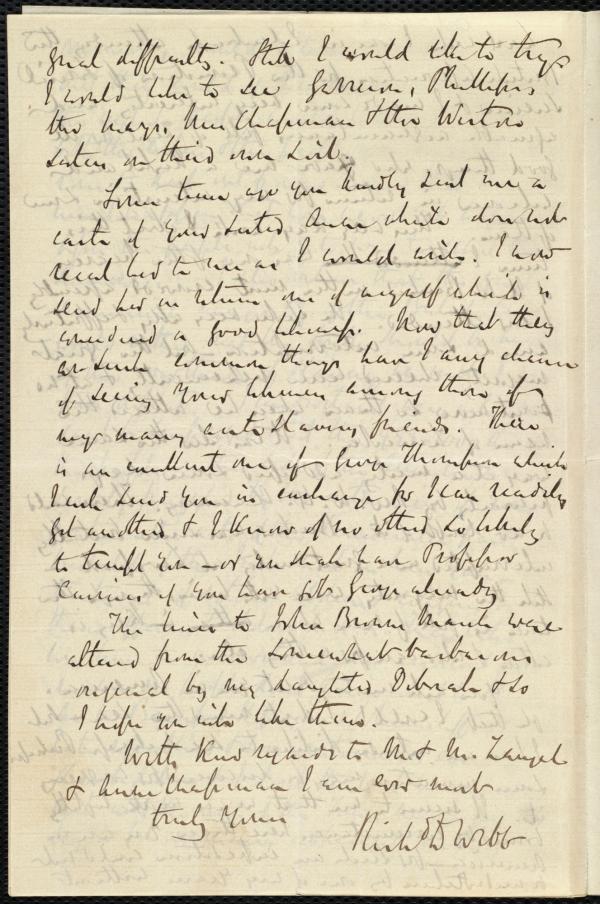 great difficulty. Still I would like to try &
I would like to see Garrison, Phillips,
the Mays, Mrs Chapman & the Weston
sisters on their own soil.
Some time ago you kindly sent me a
carte of your sister Anne which does not
recal her to me as I would wish. I now
send her in return one of myself which is
considered a good likeness. Now that they
are such common things have I any chance
of seeing your likeness among those of
my many anti slavery friends. There
is an excellent one of George Thompson which
I will send you in exchange for I can readily
get another & I know of no other so likely
to tempt you — or you shall have Professor
Cairnes if you have got George already
The lines to John Brown March were
altered from the somewhat barbarous
original by my daughter Deborah & so
I hope you will like them.
With kind regards to M. & M. Laugel
& Anne Chapman I am ever most
truly yours
Richd D Webb